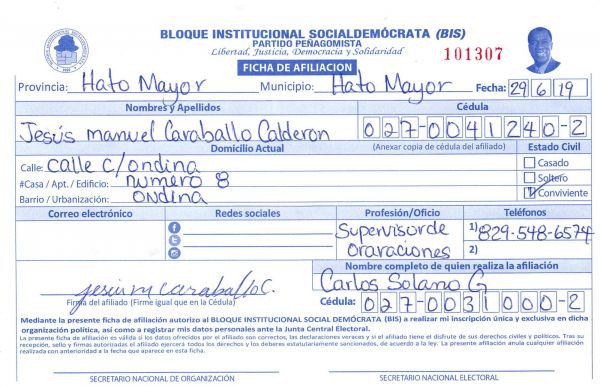 BLOQUE INSTITUCIONAL SOCIALDEMÓCRATA (BIS)
PARTIDO PEÑAGOMISTA
Libertad, Justicia, Democracia y Solidaridad
101307
FICHA DE AFILIACION
Provincia: Hato Mayor Municipio: Hato Mayor Fecha: 29 6 19
Nombres y Apellidos Cédula
Jesús manuel Caraballo Calderon 027-0041240-2
Domicilio Actual (Anexar copia de cédula del afiliado) Estado Civil
Calle: calle c/ondina Casado
#Casa / Apt. / Edificio: numero 8 Soltero
Barrio / Urbanización: ondina Conviviente
Correo electrónico Redes sociales Profesión/Oficio Teléfonos
Supervisor de 1) 829-548-6574
oraraciones 2)
Nombre completo de quien realiza la afiliación
Jesus m caraballo C. Carlos Solano G
Firma del afiliado (Firme igual que en la Cédula) Cédula: 027-0031000-2
Mediante la presente ficha de afiliación autorizo al BLOQUE INSTITUCIONAL SOCIAL DEMÓCRATA (BIS) a realizar mi inscripción única y exclusiva en dicha
organización política, así como a registrar mis datos personales ante la Junta Central Electoral.
La presente ficha de afiliación es válida si los datos ofrecidos por el afiliado son correctos, las declaraciones veraces y si el afiliado tiene el disfrute de sus derechos civiles y políticos. Tras su
recepción, sello y firmas autorizadas el afiliado ejercerá todos los derechos y los deberes estatutariamente sancionados, de acuerdo a la ley. La presente afiliación anula cualquier afiliación
realizada con anterioridad a la fecha que aparece en esta ficha.
SECRETARIO NACIONAL DE ORGANIZACIÓN SECRETARIO NACIONAL ELECTORAL